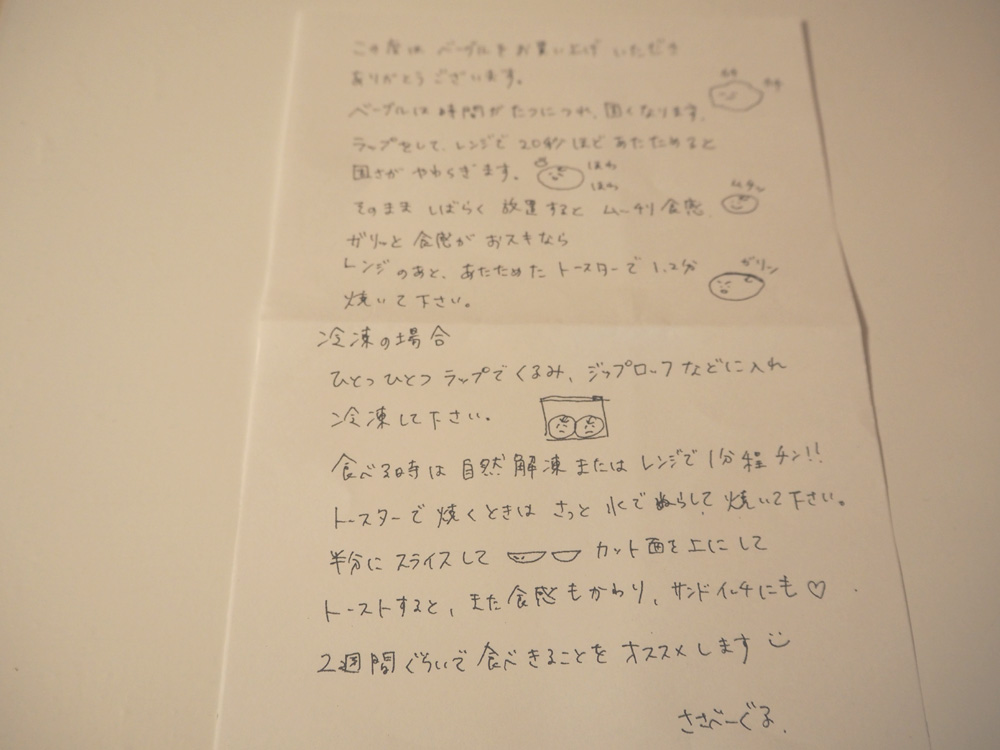 この度は ベーグルをお買い上げ いただき
ありがとうございます。
カチ カチ
ベーグルは時間がたつにつれ、固くなります。
ラップをして、レンジで 20秒ほど あたためると
固さが やわらぎます。
ほわ
ほわ
ムチッ
そのまま しばらく 放置すると ムーチリ食感
ガリッと食感が おスキなら
レンジのあと、あたためた トースターで 1、2分
ガリン
焼いて下さい。
冷凍の場合
ひとつひとつ ラップでくるみ、ジップロックなどに入れ
冷凍して下さい。
食べる時は 自然解凍 または レンジで 1分程 チン!!
トースターで 焼くときは さっと 水で ぬらして 焼いて下さい。
半分に スライスして カット面を上にして
トーストすると、また食感もかわり、サンドイッチにも♡
2週間ぐらいで 食べきることを オススメします
ささべーぐる.